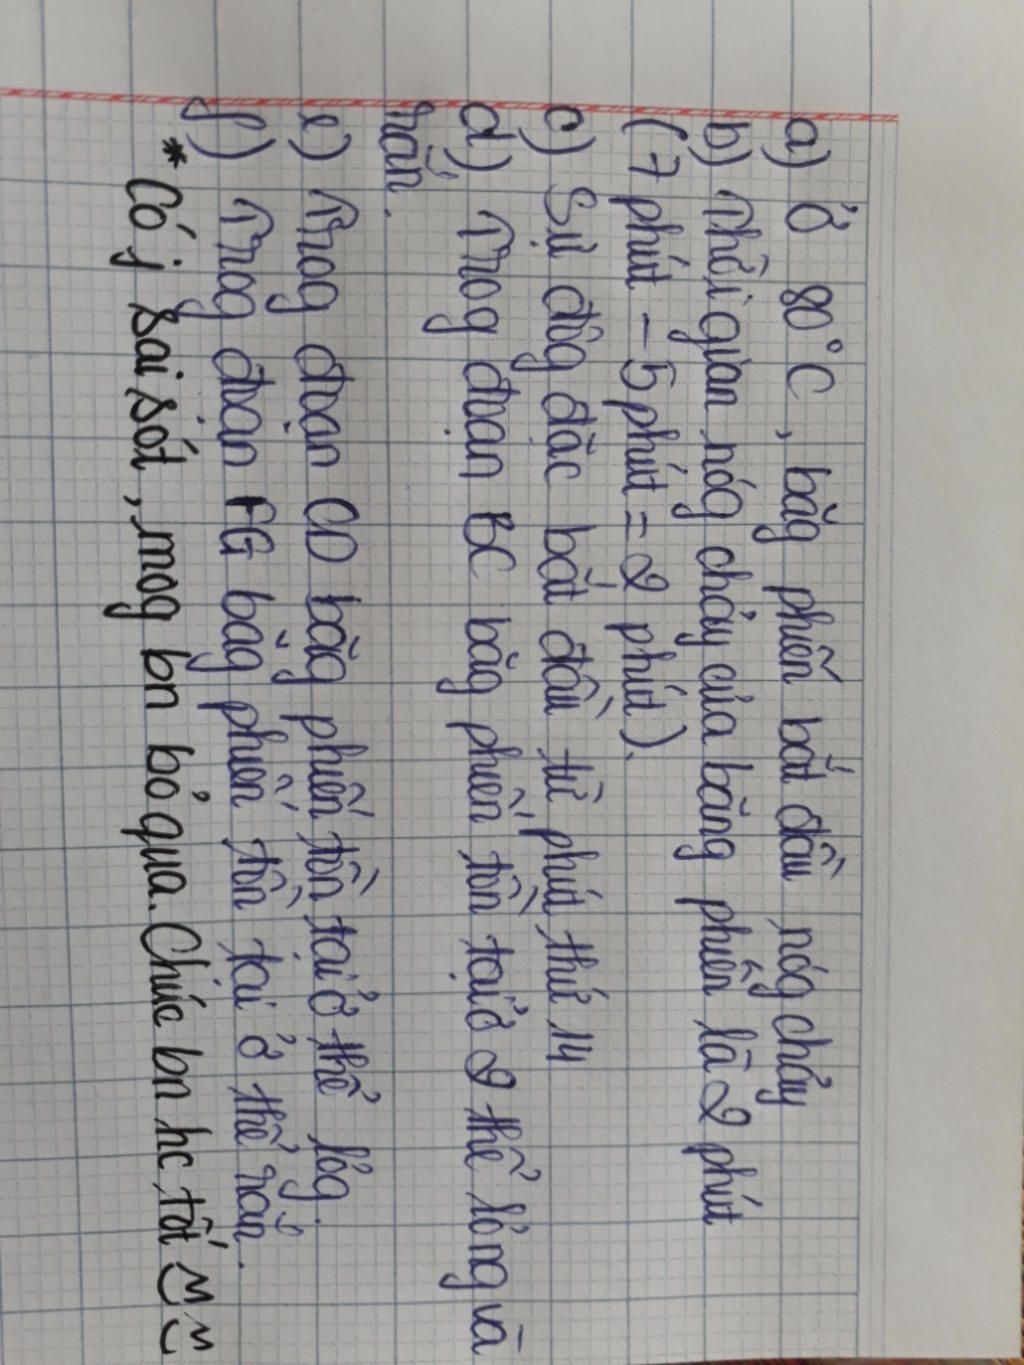 a) Ở 80°C, băg phiến bắt đầu nóg chảy
b) Thời gian nóg chảy của băng phiến là 2 phút
(7 phút - 5 phút = 2 phút).
c) Sự đôg đăc bắt đầu từ phút thứ 14
d) Trog đoạn BC băg phiến tồn tại ở 2 thể lỏng và
rắn.
e) Trog đoạn CD băg phiến tồn tại ở thể lỏg.
f) Trog đoạn FG băg phiến tồn tại ở thể rắn.
* Có j sai sót, mog bn bỏ qua. Chúc bn hc tốt